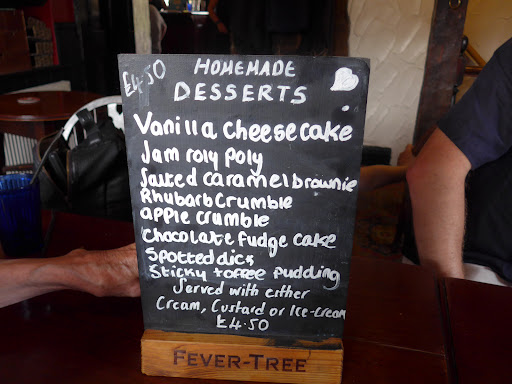 £4.50
HOMEMADE
DESSERTS
Vanilla cheesecake
Jam roly poly
Salted caramel brownie
Rhubarb Crumble
apple crumble
Chocolate fudge cake
Spotted dick
Sticky toffee pudding
Served with either
Cream, Custard or Ice-Cream
£4.50
FEVER-TREE